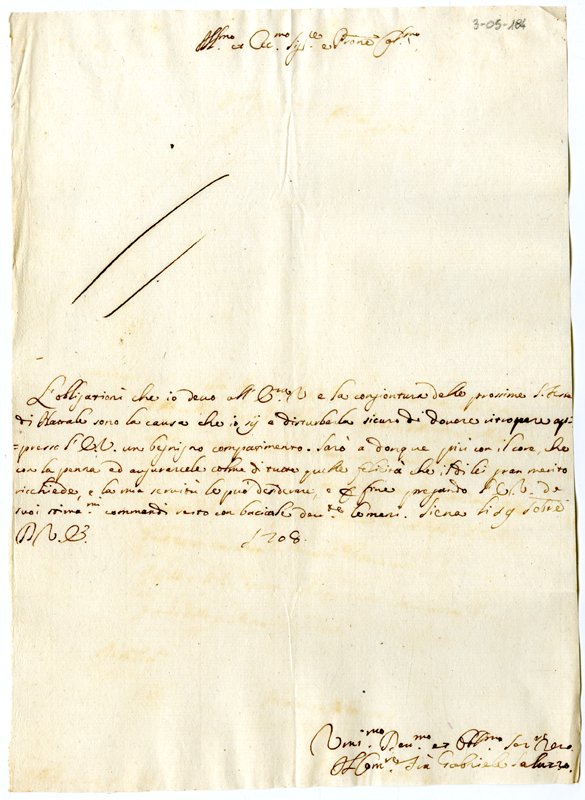 3-05-184
Ill.mo et Ecc.mo Sig.re e Prone Col.mo
L'obligationi che io devo all'E.V. e la conjontura delle prossime S. Feste
di Natale sono la causa che io sij e disturbela sicuro di dovere ricopere ap=
=presso l'E.V. un benigno compatimento. Sarò a donque più con il core, che
con la penna ad augurarcele colme di tutte quelle felicità che il di lei gran merito
richiede, e la mia servitù le può desiderare, e per fine pregando l'E.V. de
suoi stima.mi commandi resto con baciale dev.te le mani. Siena li
D.V.E. 1708.
Umi.mo Dev.mo et Obbl.mo Ser.re Vero
Il Com.re Frà Gabriele Saluzzo